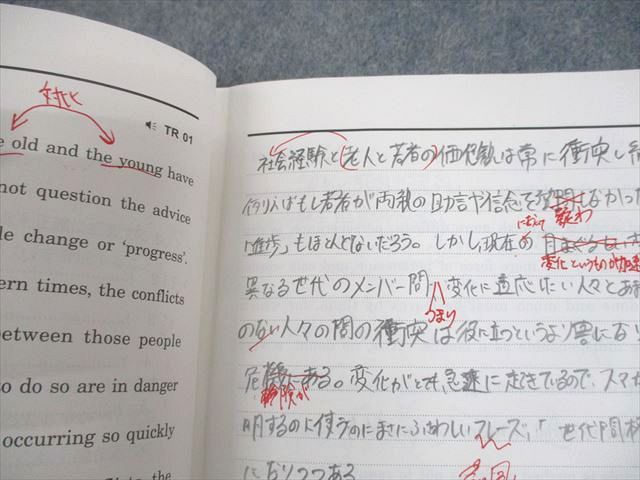 対比
TR 01
e old and the young have
not question the advice
le change or 'progress'.
ern times, the conflicts
between those people
to do so are in danger
occurring so quickly
the
社会経験と(老人と若者の)価値観は常に衝突し
例えばもし若者が両親の助言や信念を疑問しなかった
疑わ
「進歩」もほとんどないだろう。しかし現在の
において
変化というものが加速
異なる世代のメンバー間 変化に適応したい人々と
つまり
のない人々の間の衝突は役に立つというより害になる
危機にある。変化がとても急速に起きているので、スマ
険が
明するのに使うのにまさにふさわしいフレーズ、「世代間格
になりつつある